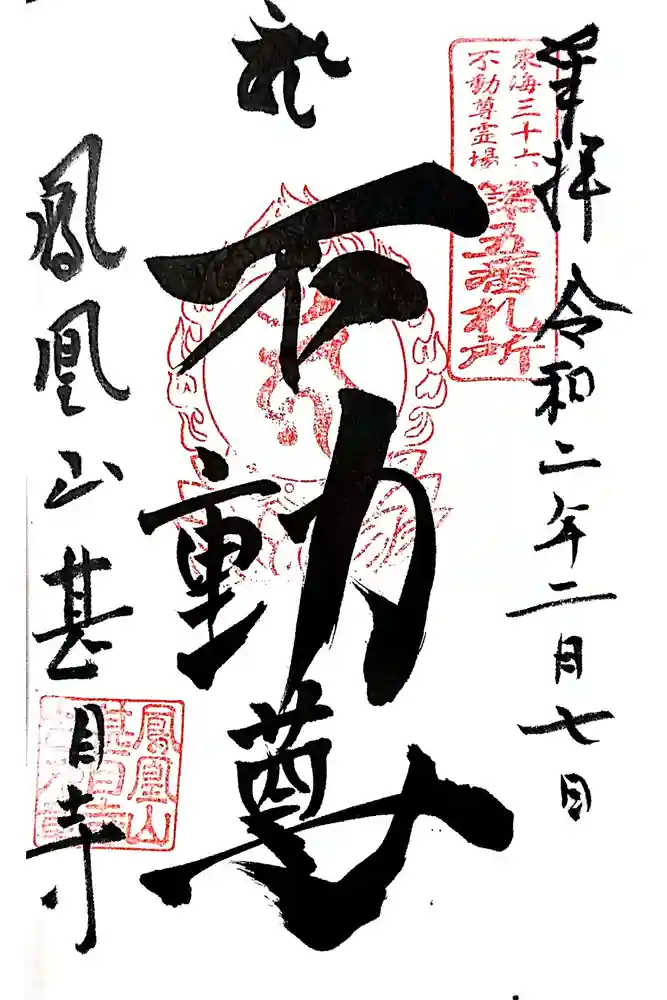 奉拝 令和二年二月七日
東海三十六
不動尊霊場
第五番札所
不動尊
鳳凰山甚目寺
鳳凰山
甚目寺